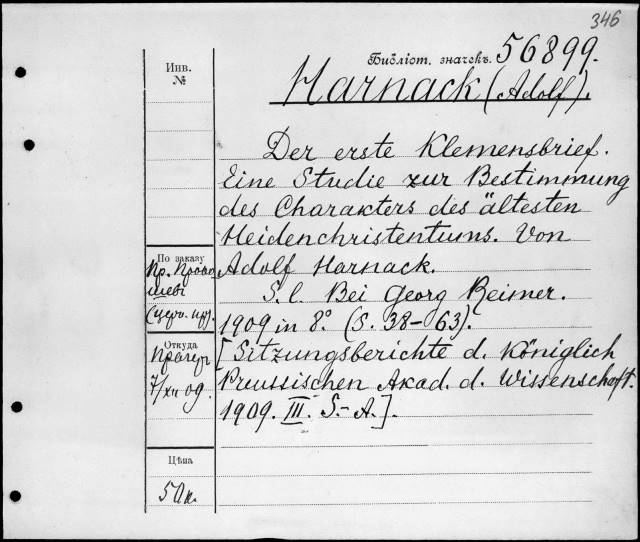 346
Библіот. значекъ. 56899.
Harnack (Adolf).
Инв.
№
Der erste Klemensbrief.
Eine Studie zur Bestimmung
des Charakters des ältesten
Heidenchristentums. Von
Adolf Harnack.
S. l. Bei Georg Reimer.
1909 in 8°. (S. 38-63).
[Sitzungsberichte d. Königlich
Preussischen Akad. d. Wissenschaft.
1909. III. S.-A.].
По заказу
Пр.
(церк. ист.).
Откуда
7/XII 09.
Цѣна
50 к.